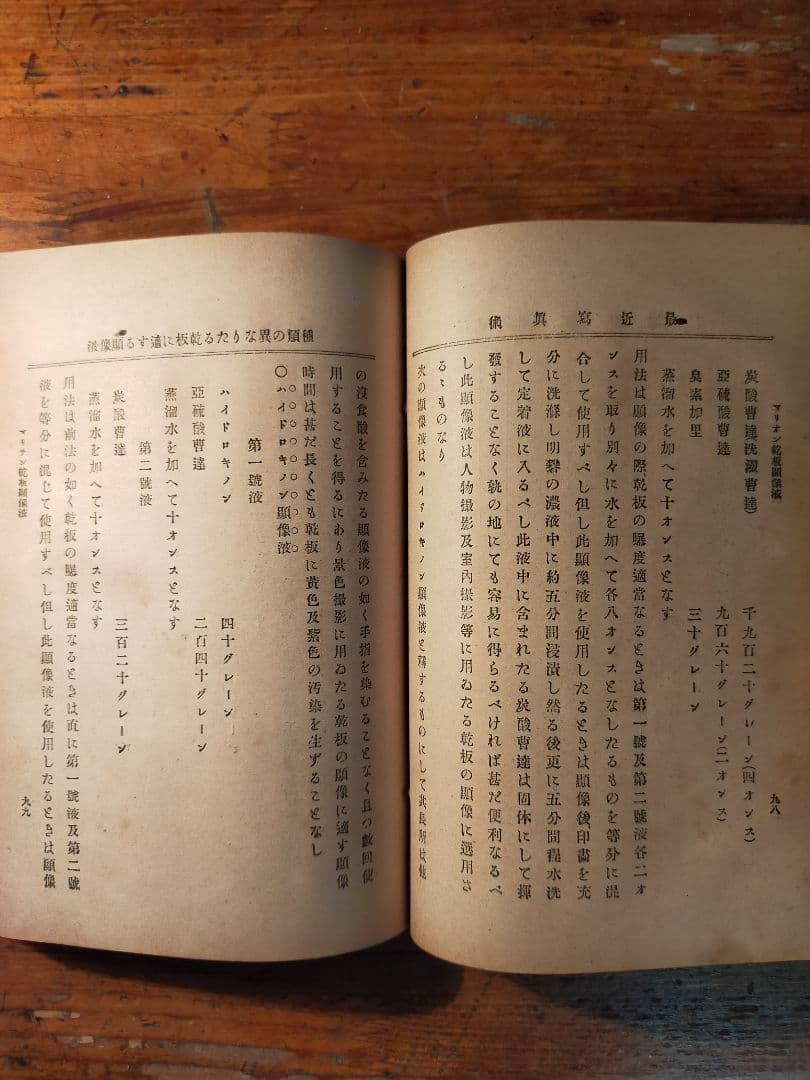 最近寫眞術
マリオン乾板顯像液
九八
炭酸曹達(洗濯曹達) 千九百二十グレーン(四オンス)
亞硫酸曹達 九百六十グレーン(二オンス)
臭素加里 三十グレーン
蒸溜水を加へて十オンスとなす
用法は顯像の際乾板の曝度適當なるときは第一號及第二號液各二オ
ンスを取り別々に水を加へて各八オンスとなしたるものを等分に混
合して使用すべし但し此顯像液を使用したるときは顯像後印畫を充
分に洗滌し明礬の濃液中に約五分間浸漬し然る後更に五分間程水洗
して定着液に入るべし此液中に含まれたる炭酸曹達は固体にして揮
發することなく孰の地にても容易に得らるべければ甚だ便利なるべ
し此顯像液は人物撮影及室內撮影等に用ゐたる乾板の顯像に適用さ
るゝものなり
次の顯像液はハイドロキノン顯像液と稱するものにして其長所は他
種類の異なりたる乾板に適する顯像液
の沒食酸を含みたる顯像液の如く手指を染むることなく且つ數回使
用することを得るにあり景色撮影に用ゐたる乾板の顯像に適す顯像
時間は甚だ長くとも乾板に黄色及紫色の汚染を生ずることなし
〇ハイドロキノン顯像液
第一號液
ハイドロキノン 四十グレーン
亞硫酸曹達 二百四十グレーン
蒸溜水を加へて十オンスとなす
第二號液
炭酸曹達 三百二十グレーン
蒸溜水を加へて十オンスとなす
用法は前法の如く乾板の曝度適當なるときは直に第一號液及第二號
液を等分に混じて使用すべし但し此顯像液を使用したるときは顯像
マリオン乾板顯像液
九九